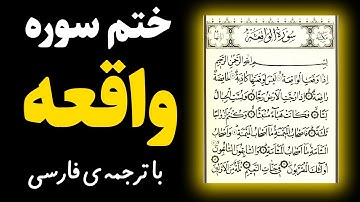 ختم سوره
واقعه
با ترجمه ی فارسی
سورة الواقعة
بسم الله الرحمن الرحيم
إذا وقعت الواقعة ليس لوقعتها كاذبة خافضة
رافعة إذا رجت الأرض رجا وبست الجبال
بسا فكانت هباء منبثا وكنتم أزواجا
ثلاثة فأصحاب الميمنة ما أصحاب الميمنة وأصحاب
المشأمة ما أصحاب المشأمة والسابقون السابقون
أولئك المقربون في جنات النعيم ثلة من الأولين